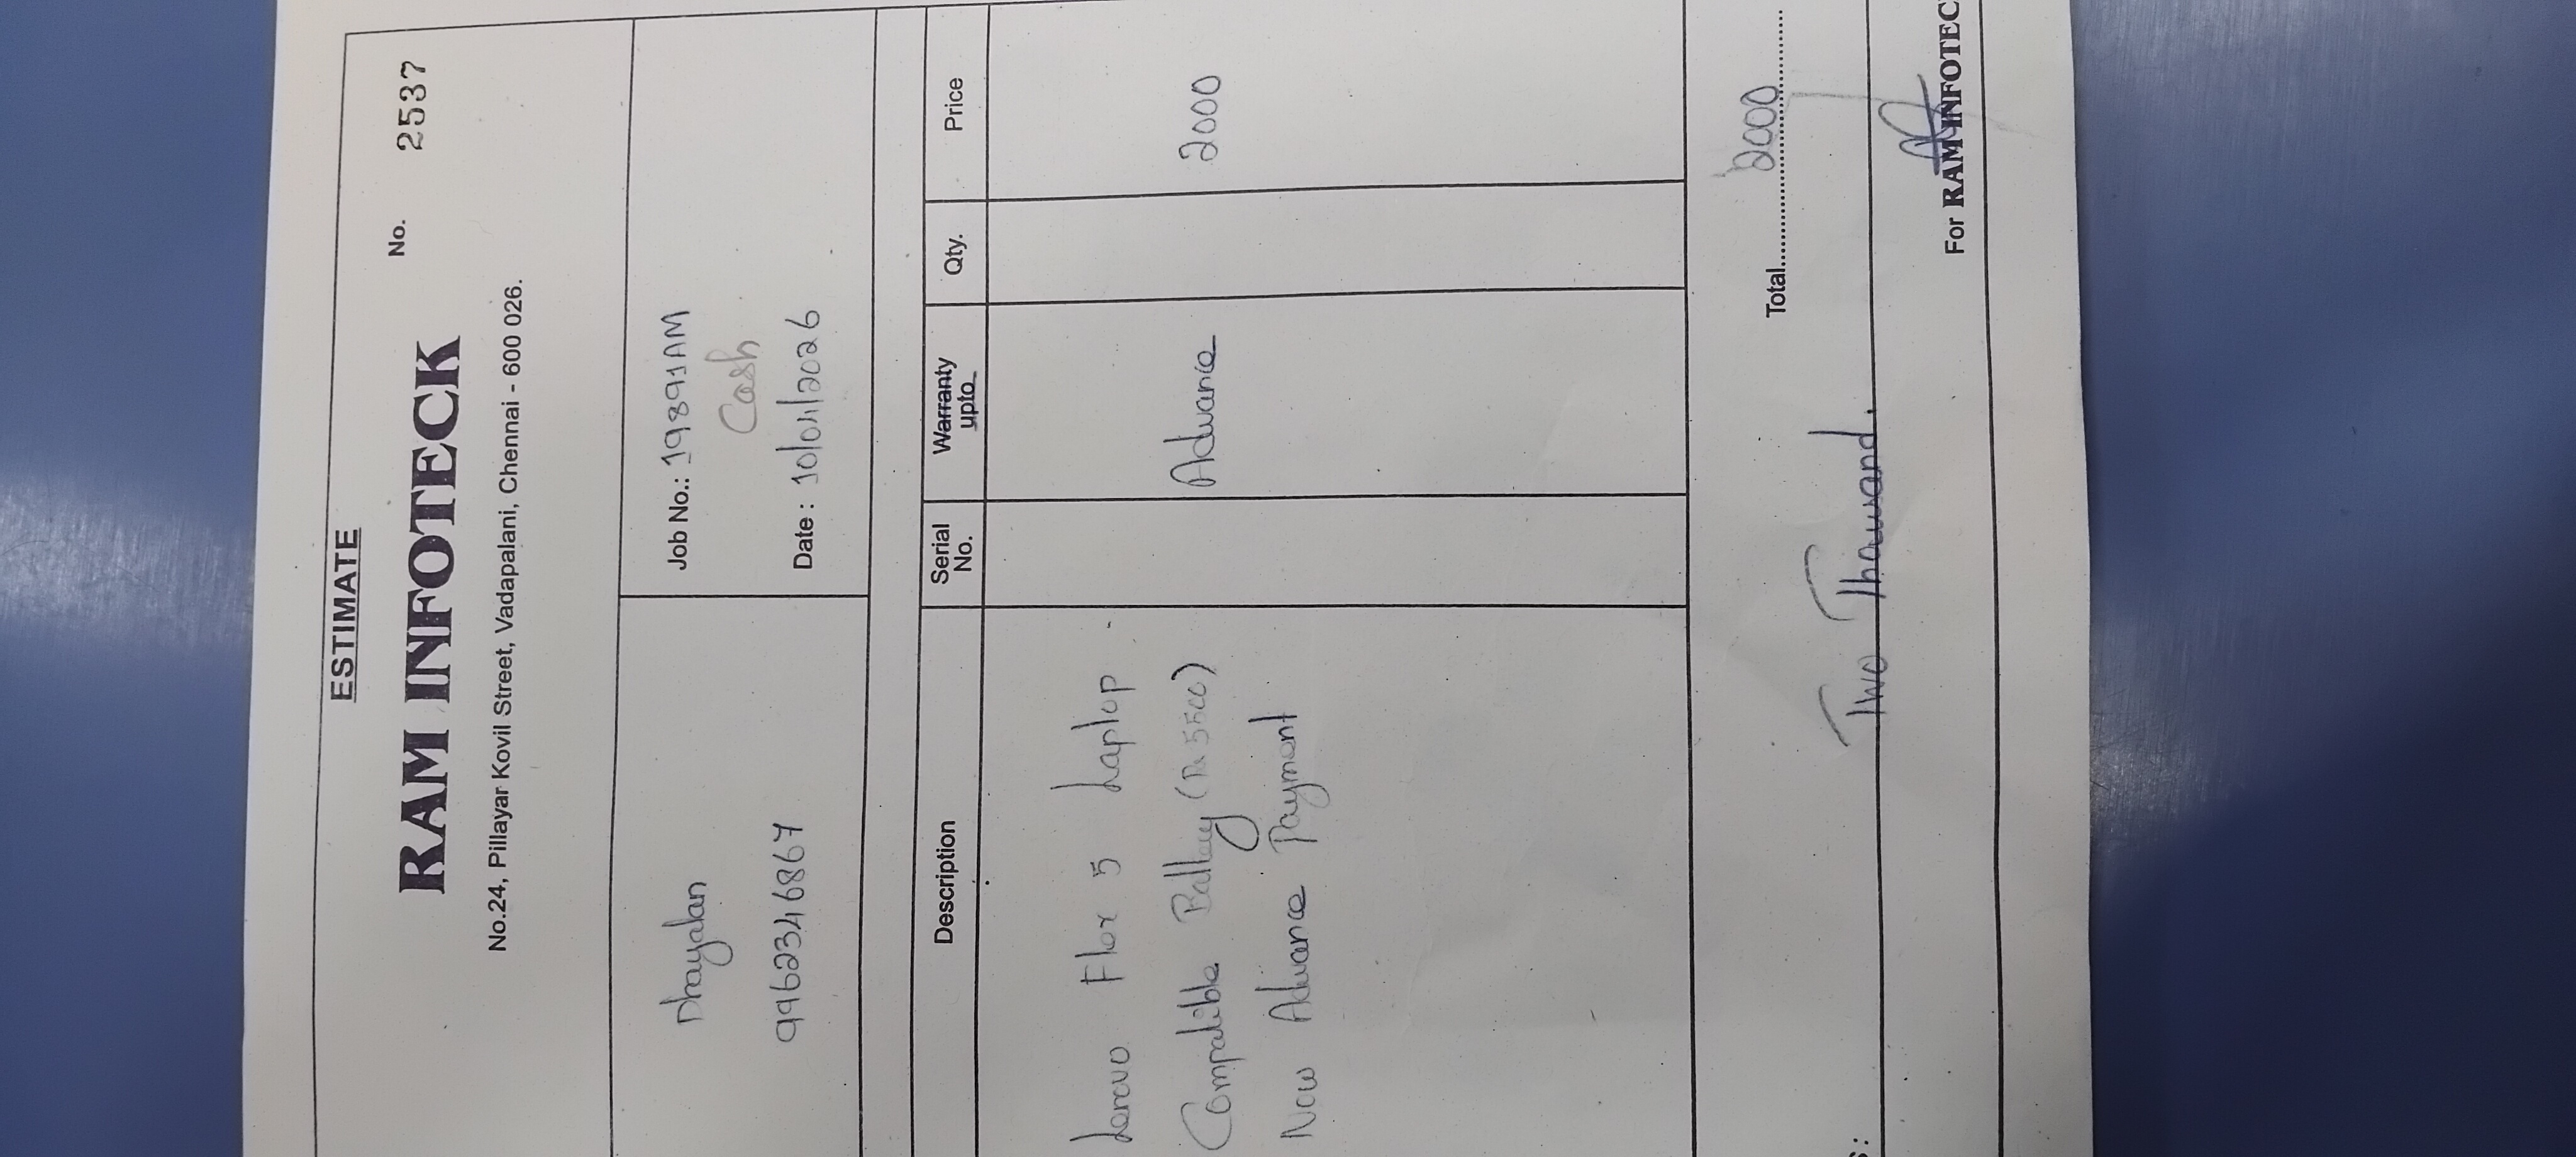 ESTIMATE
RAM INFOTECK
No. 2537
No.24, Pillayar Kovil Street, Vadapalani, Chennai - 600 026.
Dhayalan
9962346867
Job No.: 19891AM
Cash
Date : 10/01/2026
Description Serial No. Warranty upto Qty. Price
Lenovo Flex 5 Laptop
Compatible Battery (Rs 5500) Advance 2000
Now Advance Payment
Total 2000
Two Thousand.
For RAM INFOTEC